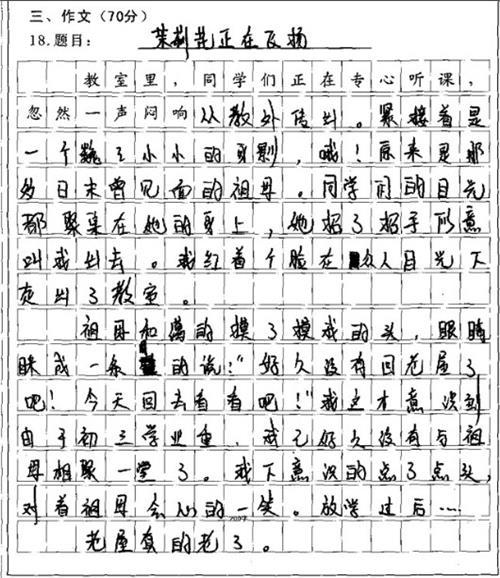 三、作文(70分)
18.题目: 茉莉花正在飞扬
教室里,同学们正在专心听课,
忽然一声闷响从教外传出。紧接着是
一个巍了小小的身影,哦!原来是那
多日未曾见面的祖母。同学们的目光
都聚集在她的身上,她招了招手示意
叫我出去。我红着个脸在众人目光下
走出了教室。
祖母和蔼的摸了摸我的头,眼睛
眯成一条 的说:"好久没有回老屋了
吧!今天回去看看吧!"我这才意识到
由于初三学业重,我已好久没有与祖
母相聚一堂了。我下意识的点了点头,
对着祖母会心的一笑。放学过后……
老屋真的老了。